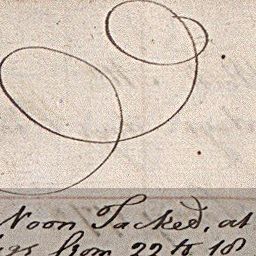 Noon Tacked, at
from 22 to 18